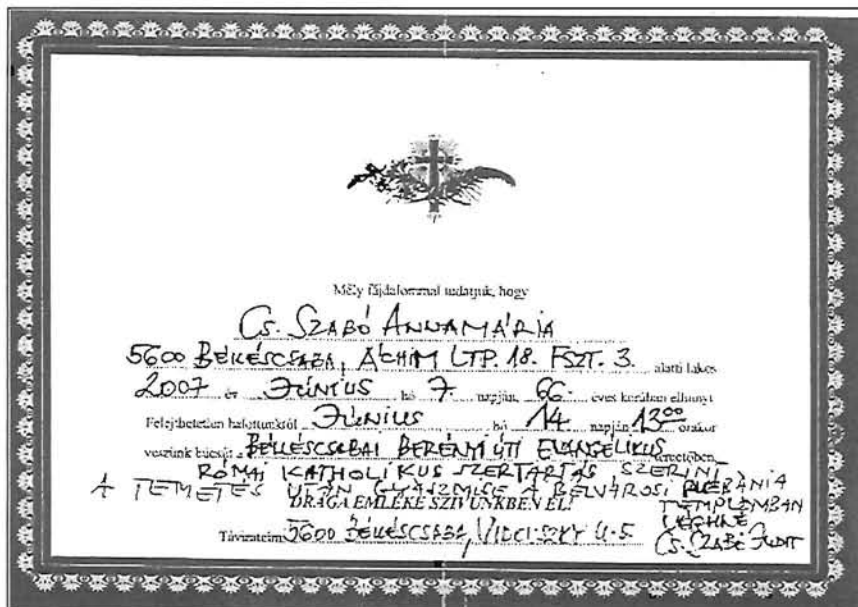 Mély fájdalommal tudatjuk, hogy
Cs. SZABÓ ANNAMÁRIA
5600 BÉKÉSCSABA, ÁCHIM LTP. 18. FSZT. 3. alatti lakos
2007 év JÚNIUS hó 7. napján, 66. éves korában elhunyt
Felejthetetlen halottunktól JÚNIUS hó 14. napján 13⁰⁰ órakor
veszünk búcsút a BÉKÉSCSABAI BERÉNYI ÚTI EVANGÉLIKUS temetőben.
RÓMAI KATHOLIKUS SZERTARTÁS SZERINT
A TEMETÉS UTÁN GYÁSZMISE A BELVÁROSI PLÉBÁNIA
TEMPLOMBAN
DRÁGA EMLÉKE SZIVÜNKBEN ÉL!
Távirateim: 5600 BÉKÉSCSABA, Ú. 5.
Cs. SZABÓ JUDIT